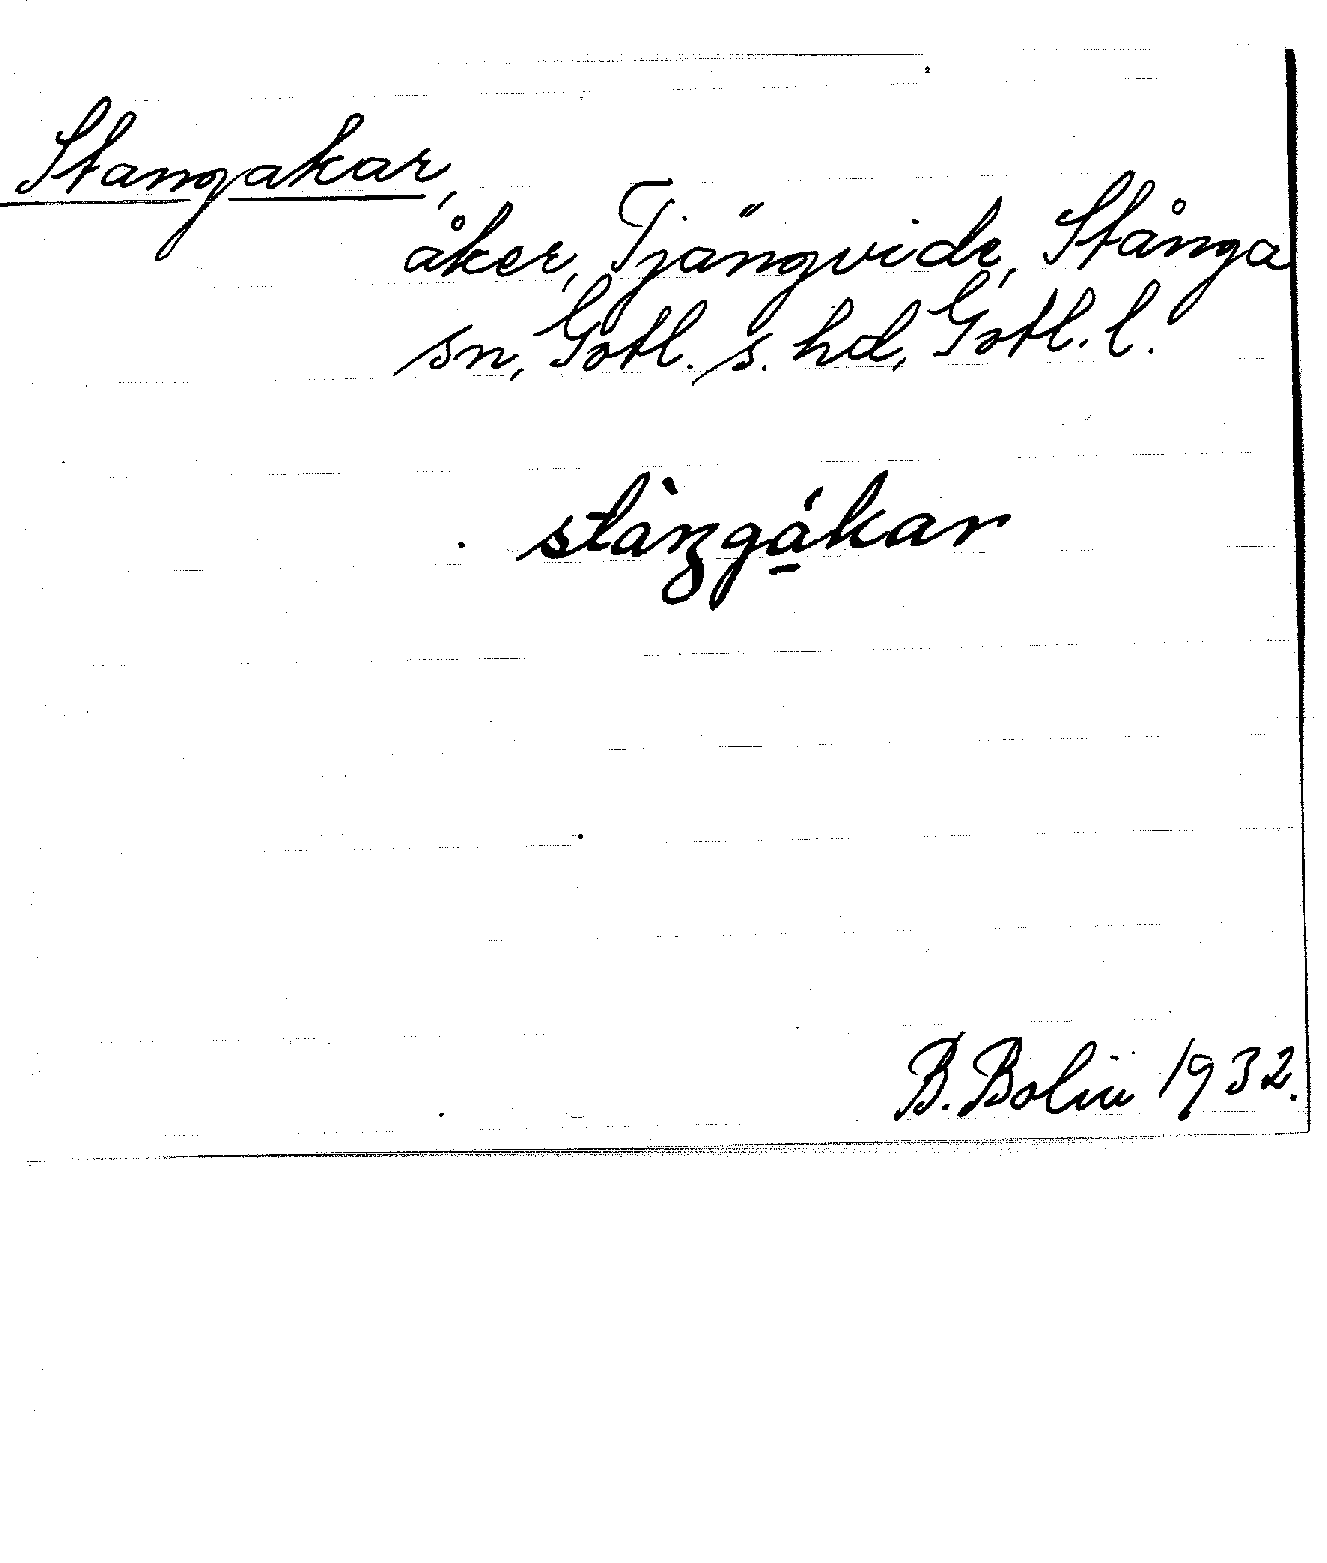 Stangakar,
åker, Tjängvide, Stånga
sn, Gotl. s. hd, Gotl. l.
stàŋgákar
B. Bolin 1932.